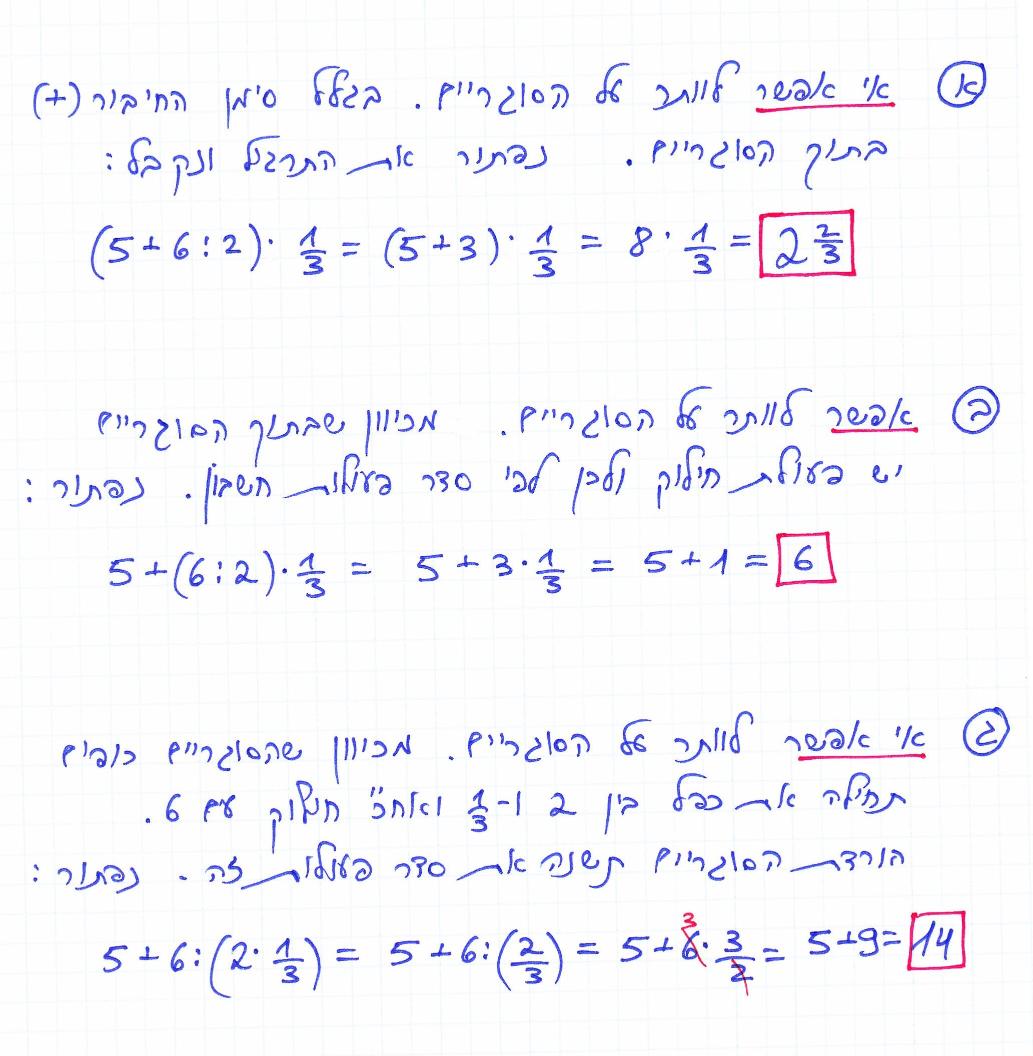 א אי אפשר לוותר על הסוגריים. בגלל סימן החיבור (+)
בתוך הסוגריים. נפתור את התרגיל ונקבל:
(5+6:2)· 1/3 = (5+3)· 1/3 = 8· 1/3 = 2 2/3
ב אפשר לוותר על הסוגריים. מכיוון שבתוך הסוגריים
יש פעולת חילוק ולכן לפי סדר פעולות חשבון. נפתור:
5+(6:2)· 1/3 = 5+3· 1/3 = 5+1 = 6
ג אי אפשר לוותר על הסוגריים. מכיוון שהסוגריים כופים
תחילה את כפל בין 2 ו-1/3 ואח"כ חילוק עם 6.
הורדת הסוגריים תשנה את סדר פעולות זה. נפתור:
5+6:(2· 1/3) = 5+6:(2/3) = 5+6 3· 3/2 = 5+9= 14